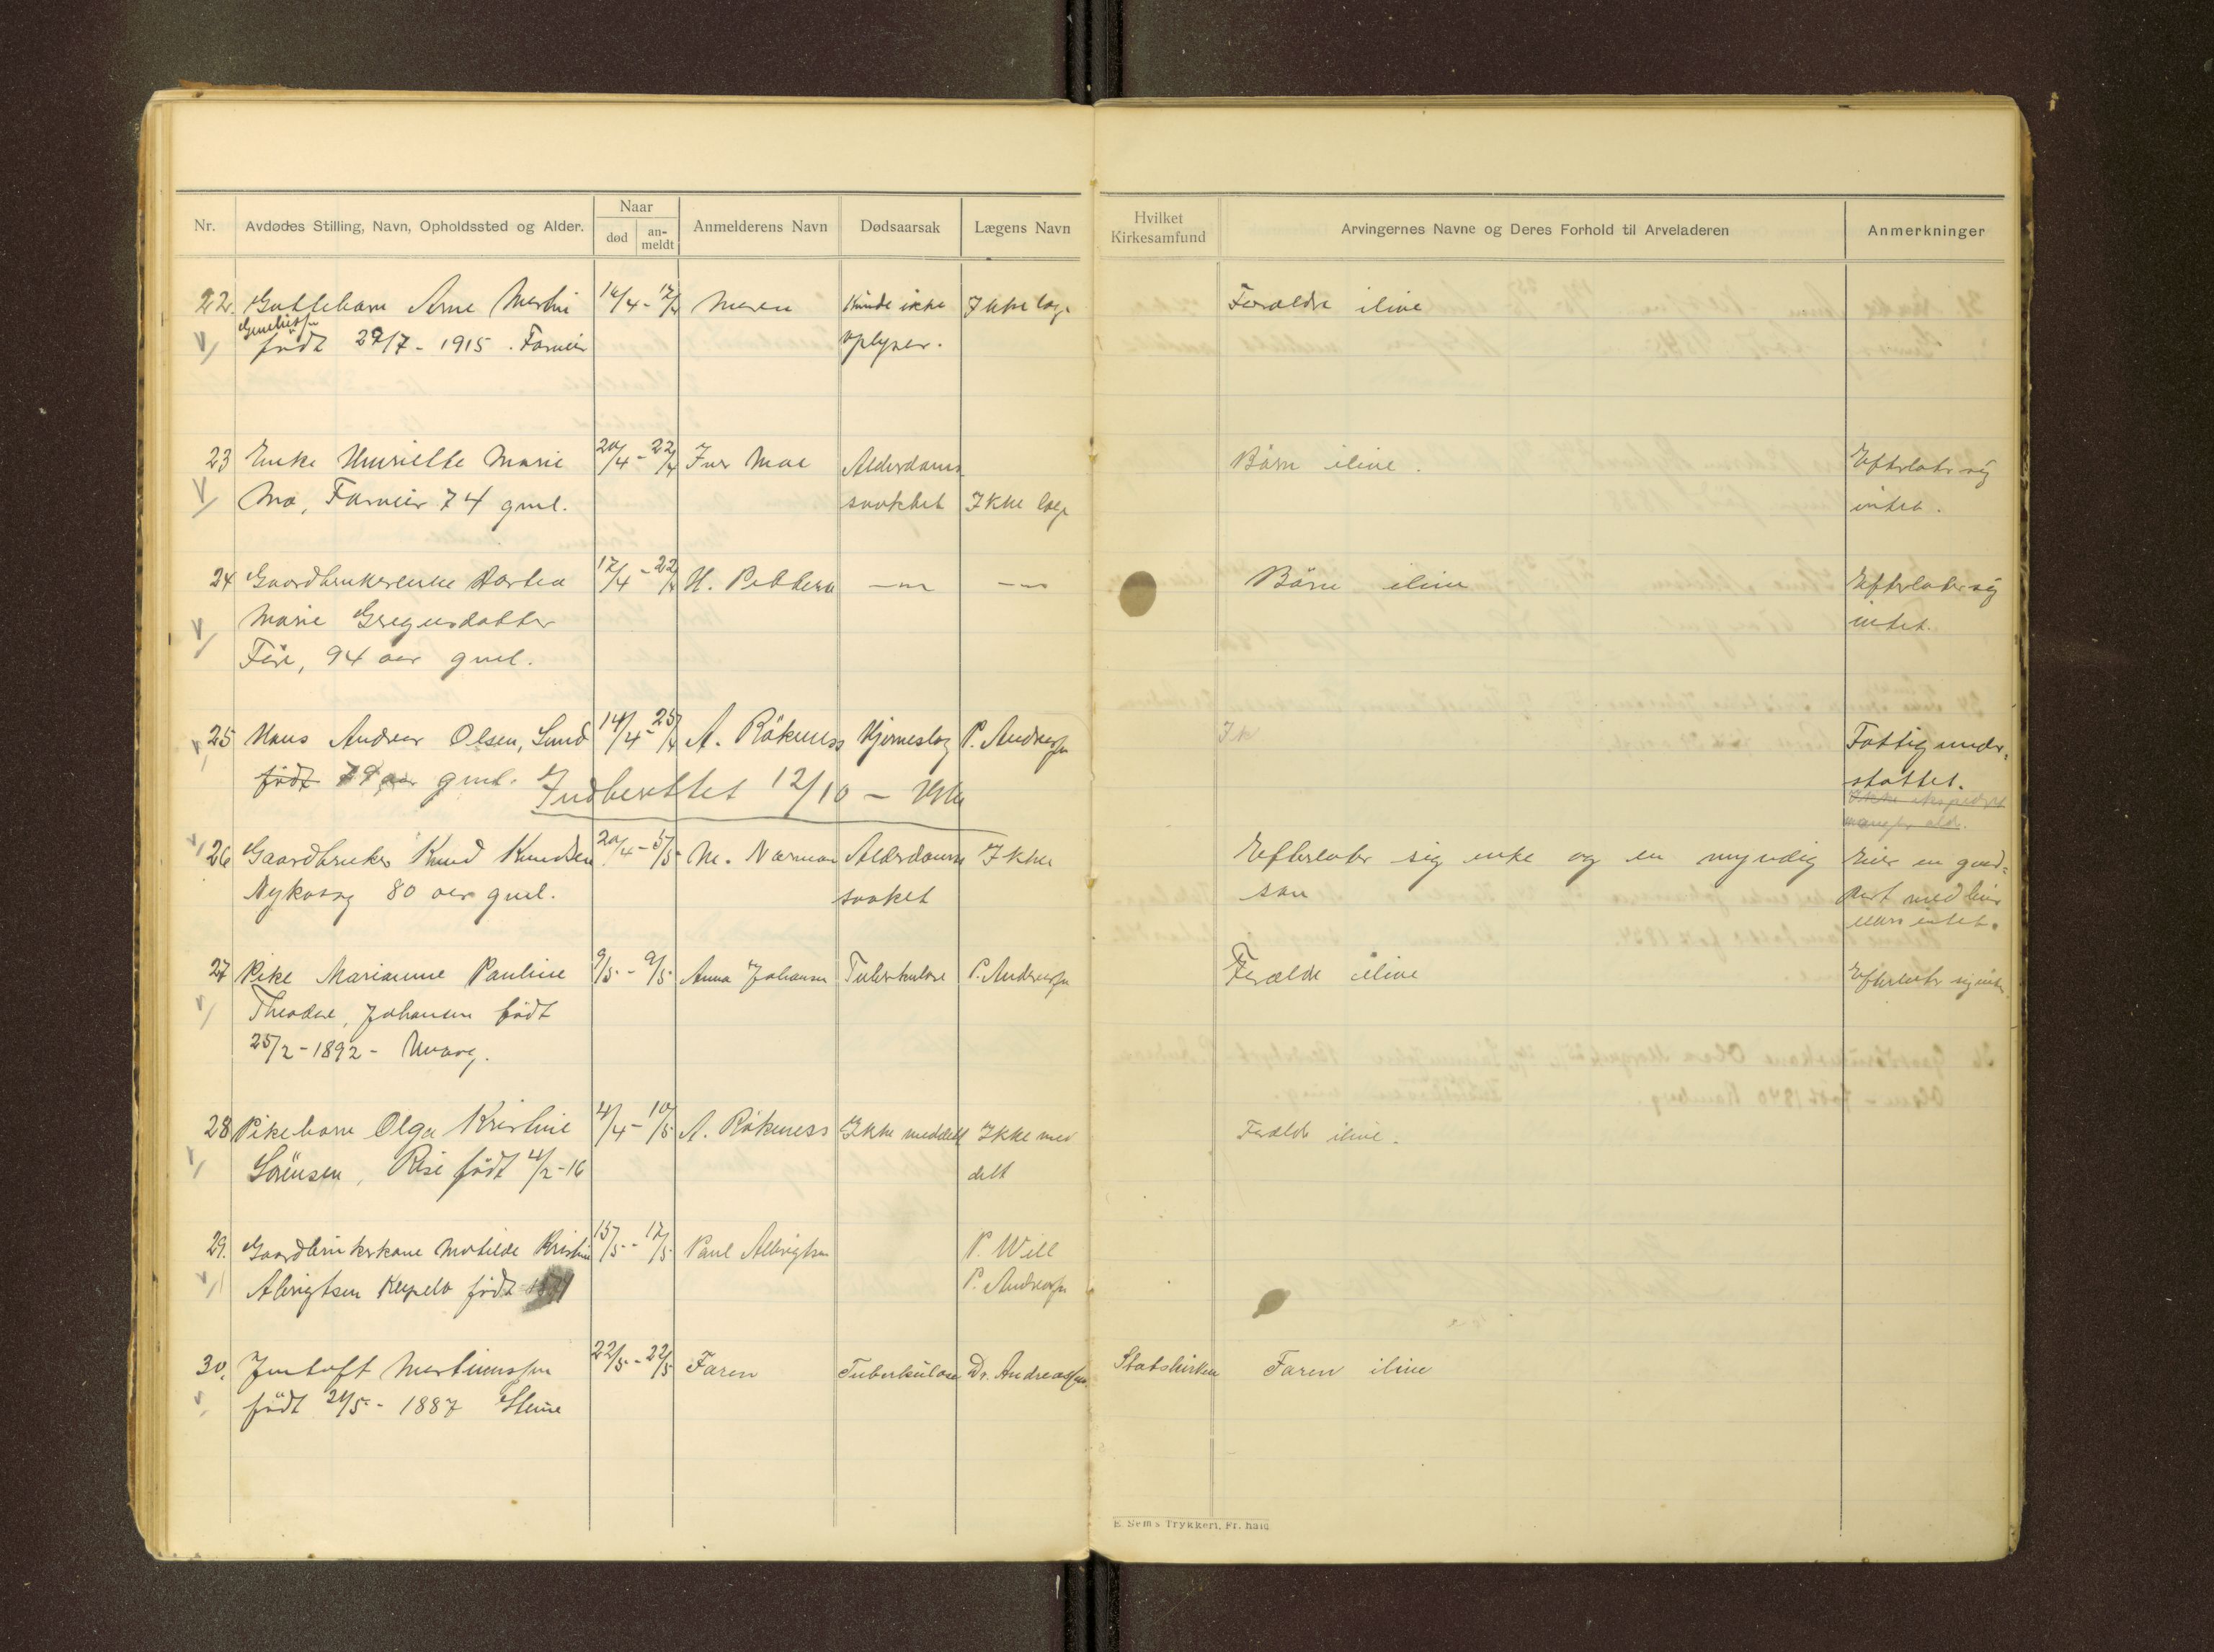 Nr. Avdødes Stilling, Navn, Opholdssted og Alder. Naar død an-meldt Anmelderens Navn Dødsaarsak Lægens Navn Hvilket Kirkesamfund Arvingernes Navne og Deres Forhold til Arveladeren Anmerkninger
22. Guttebarn Arne Martin 16/4 - 17/4 Moren Kunde ikke Ikke læge Forældre ilive
født 29/7 - 1915. Farveir oplyses.
23 Enke Henriette Marie 20/4 - 22/4 Iver Moe Alderdoms Børn ilive. Efterlater sig
Mo, Farveir 74 gml. svakhet Ikke læge intet.
24 Gaardbrukerenke Dortea 17/4 - 22/4 H. Pettersen —"— —"— Børn ilive Efterlater sig
Marie Gregusdatter intet.
Føre, 94 aar gml.
25 Hans Andreas Olsen, Lund 14/4 - 25/4 A. Rökness Hjerneslag P. Andreassen Ik Fattigunder-
født 79 aar gml. Indberettet 12/10 - støttet.
Ikke
26 Gaardbruker Knud Knudsen 20/4 - 5/5 M. Norman Alderdoms Ikke Efterlater sig enke og en myndig Eier en gaard-
Nykvaag 80 aar gml. svaket søn part med
ellers intet.
27 Pike Marianne Pauline 9/5 - 9/5 Anna Johansen Tuberkulose P. Andreassen Forældre ilive Efterlater sig intet
Theodore, Johansen født
25/2 - 1892 -
28 Pikebarn Olga Kristine 4/4 - 10/5 A. Rökness Ikke meddelt Ikke med Forældre ilive.
Sörensen, Rise født 4/2 - 16 delt
29. Gaardbrukerkone Matilde Kristine 15/5 - 17/5 Paul Albrigtsen P. Will
Albrigtsen født 1871 P. Andreassen
30. Jentoft Martinussen 22/5 - 22/5 Faren Tuberkulose Dr. Andreassen Statskirken Faren ilive
født 24/5 - 1887 Steine
E. Sem's Trykkeri, Fr.hald